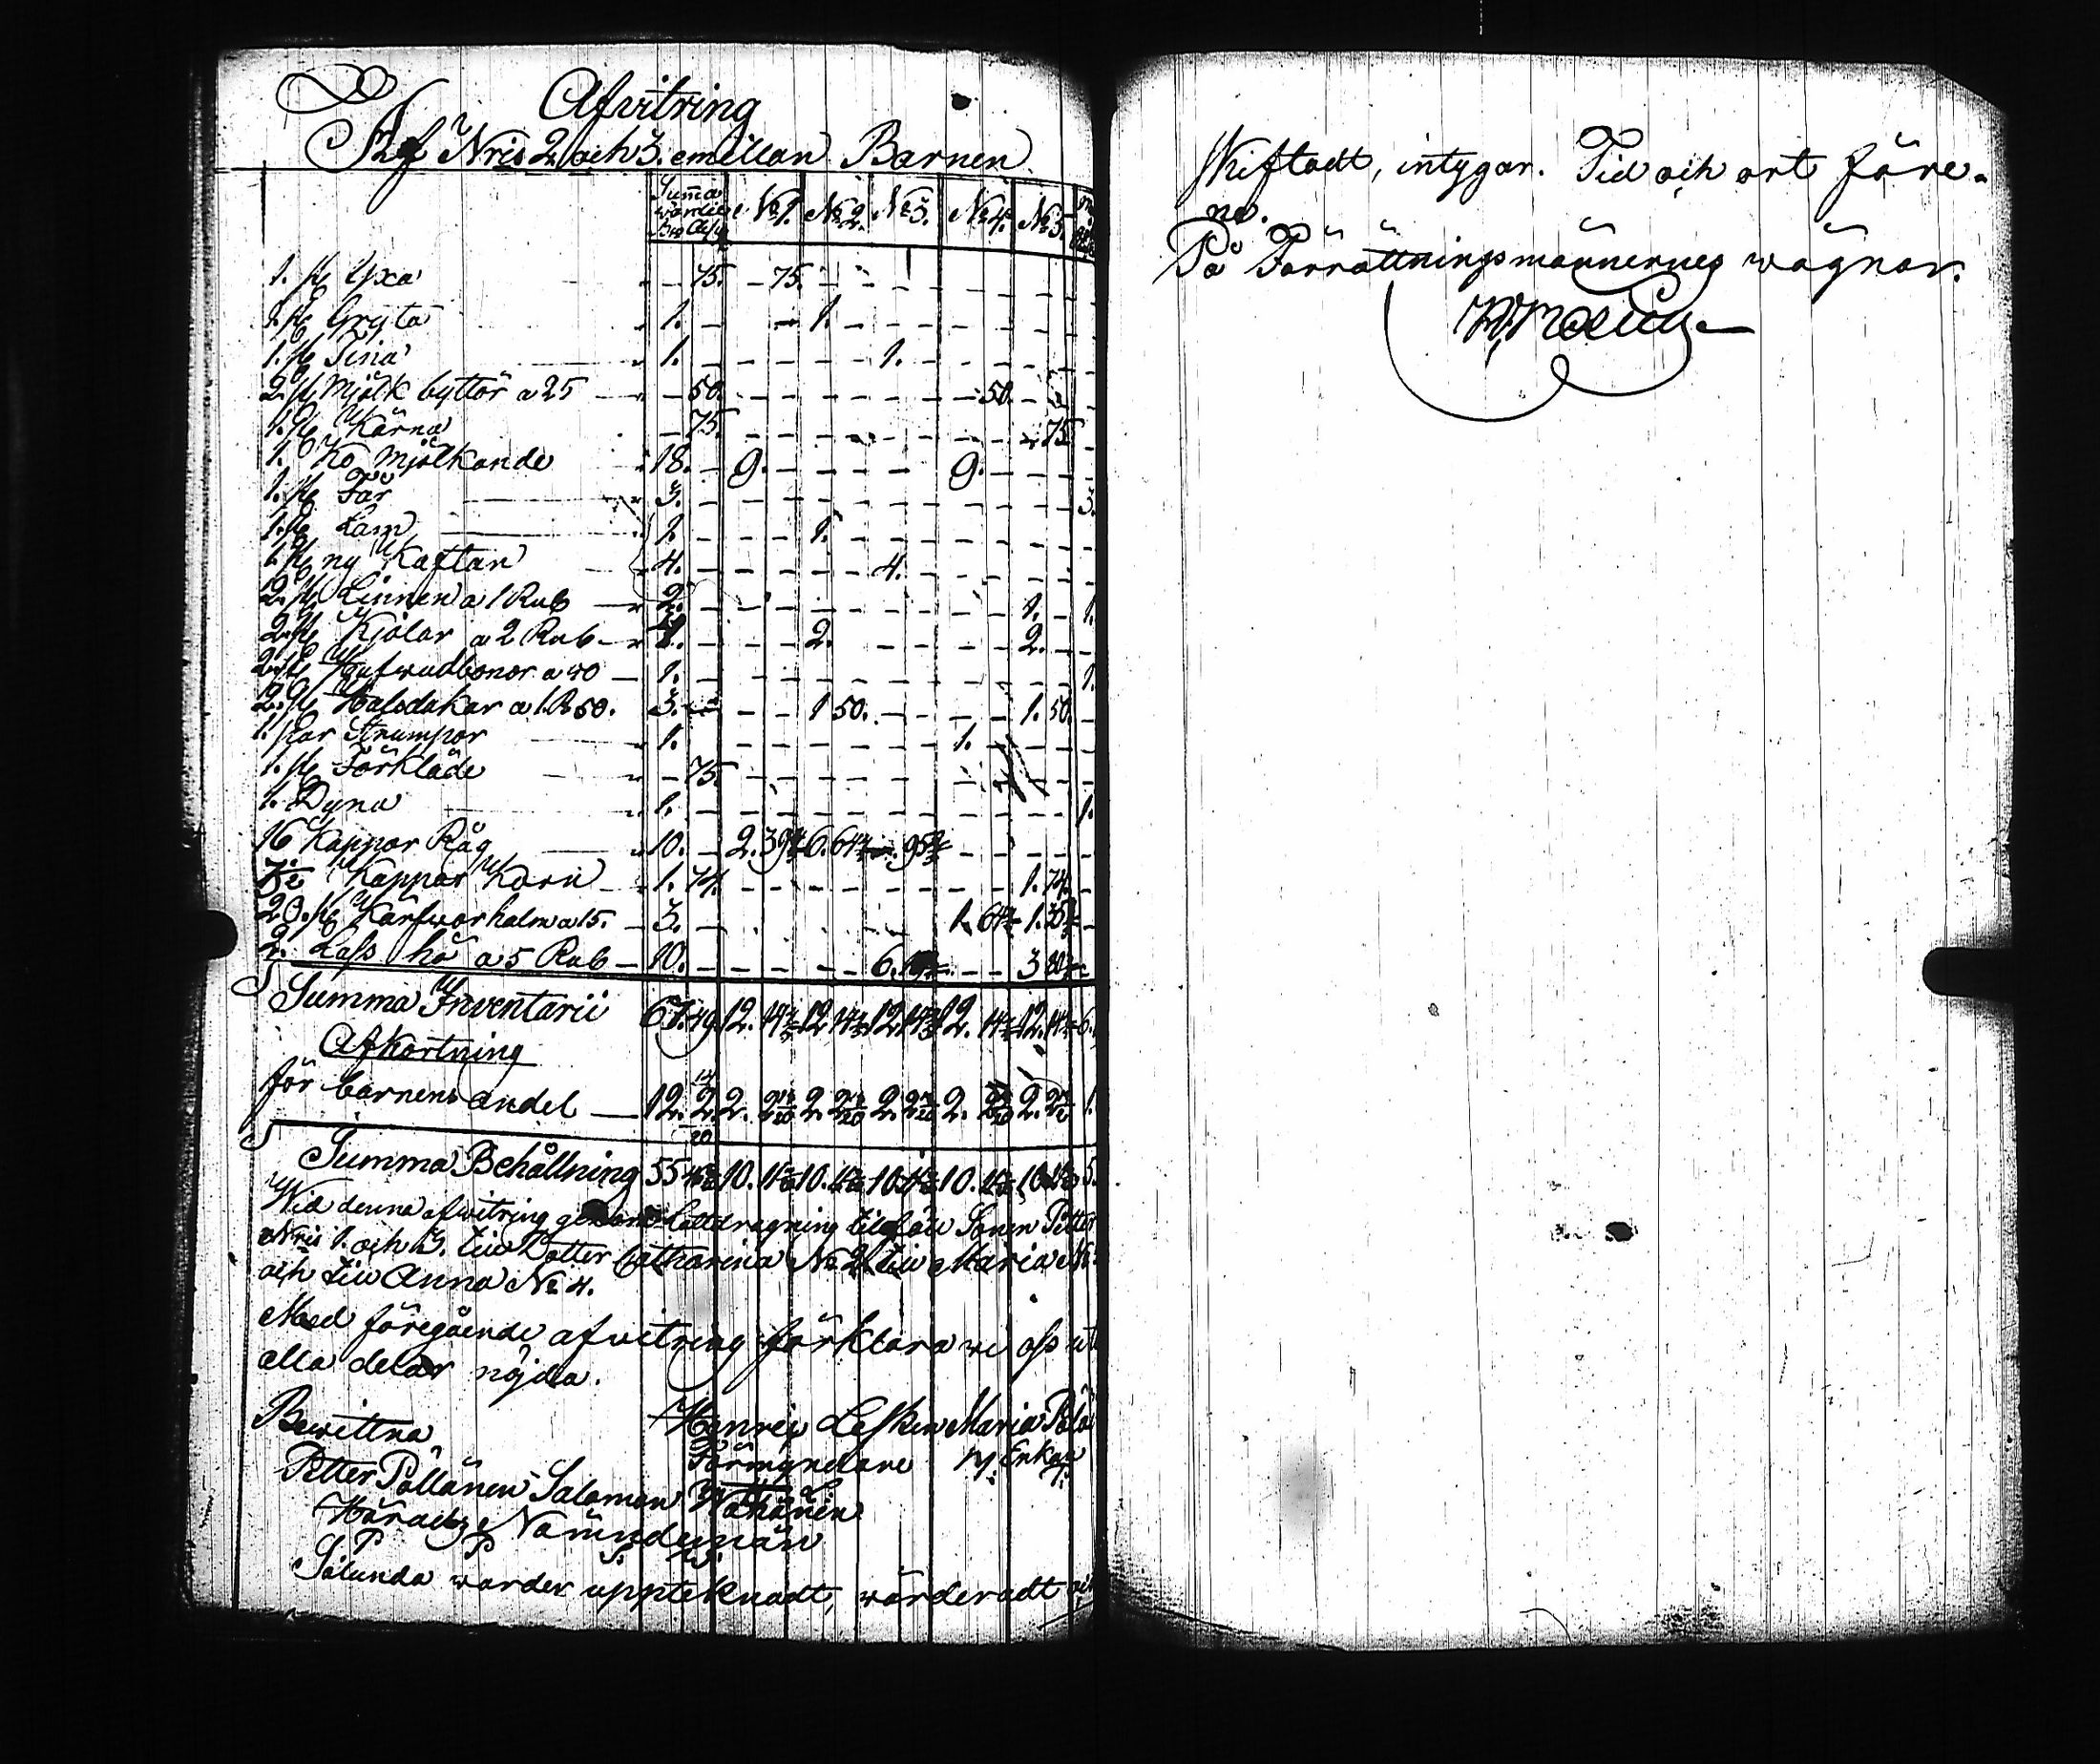 Afvitring
Af Nris 2 och 3. emellan Barnen
Summa wärde Bco Ass № 1. № 2. № 3. № 4. № 5.
1. st Yxa — 75. — 75.
1. st Gryta 1. — 1.
1. st Tina 1. — 1.
2. st Mjölk byttor a 25 — 50. — 50.
1. st Kärna — 75. — 75
1. Ko Mjölkande 18. — 9. — 9.
1. st Får 3. — 3.
1. st Lam 1. — 1.
1. st ny Kaftan 4. — 4.
2. st Linnen a 1 Rub — 2. — 1. — 1.
2. st Kjolar a 2 Rub — 4. — 2. — 2.
2. st Hufwudbonor a 40 — 1. — 1.
2. st Halsdukar a 1 R 50. 3. — 1 50. — 1. 50.
1. Par Strumpor 1. — 1.
1. st Förkläde — 75.
1. Dyna 1. — 1.
16 Kappor Råg 10. — 2. 39 6. 64 95
Kappar Korn 1. 74. — 1. 74.
20. st Kärfwor halm a 15. — 3. 1. 64 1. 35
2. Lass hö a 5 Rub — 10. — 6. 3 80
Summa Inventarii 67. 49. 12. 14 12 14 12. 14 12. 14 12. 14 6.
Afkortning
för barnens andel — 12. 2 2. 2 2. 2 2. 2 2. 2 2. 1.
Summa Behållning 55 10. 10. 10. 10. 10 5.
Wid denna afwitring genom lottdragning tilföll Sonen Petter
Nris 1. och 3. till Dotter Catharina № 2 till Maria №
och till Anna № 4.
Med föregående afvitring förklara wi oss ut
alla delar nöjda.
Bewittna Henric Lesken Maria
Förmyndare Enka
Petter Pöllänen Salomon Wäkänen
Härads Nämndemän
P P S. W.
Sålunda warder uppteknadt, wärderadt och
skiftadt, intygar. Tid och ort före-
nd.
På Förrättningsmännernes wägnar.